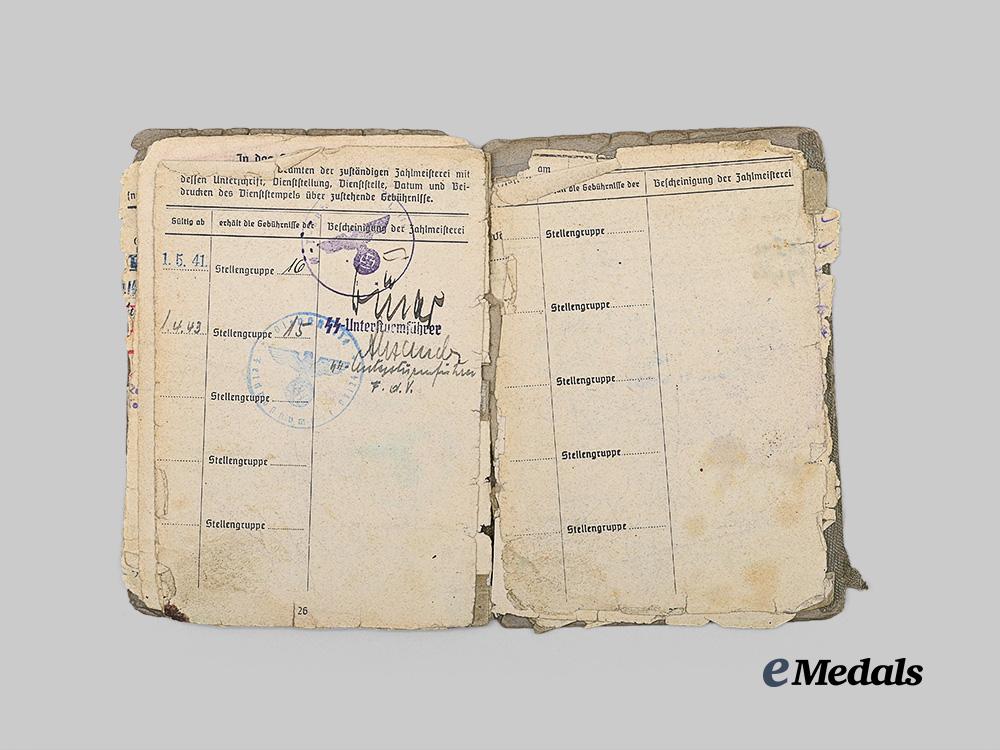 In das
Beamten der zuständigen Zahlmeisterei mit
dessen Unterschrift, Dienststellung, Dienststelle, Datum und Bei-
drucken des Dienststempels über zustehende Gebührnisse.
Gültig ab erhält die Gebührnisse der Bescheinigung der Zahlmeisterei
1. 5. 41. Stellengruppe 16
SS-Untersturmführer
1.4.43 Stellengruppe 15
SS-Untersturmführer
F. d. V.
Stellengruppe
Stellengruppe
Stellengruppe
26
am
die Gebührnisse der Bescheinigung der Zahlmeisterei
Stellengruppe
Stellengruppe
Stellengruppe
Stellengruppe
Stellengruppe
eMedals